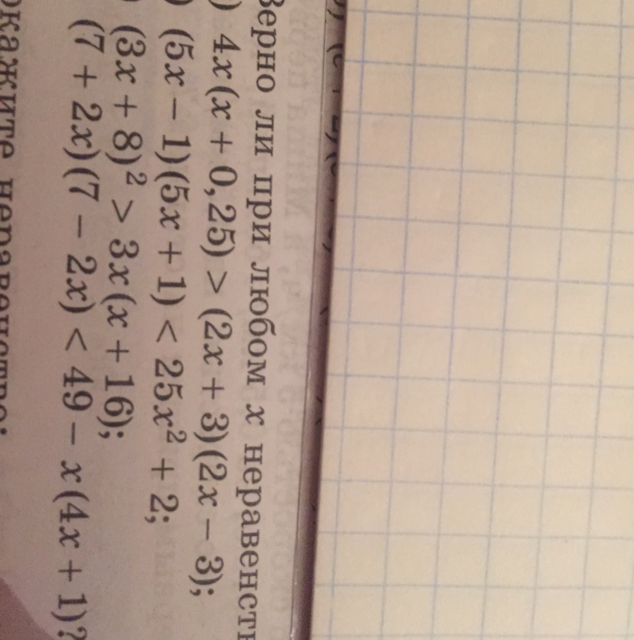 Верно ли при любом x неравенст
) 4x(x + 0,25) > (2x + 3)(2x − 3);
) (5x − 1)(5x + 1) < 25x² + 2;
) (3x + 8)² > 3x(x + 16);
(7 + 2x)(7 − 2x) < 49 − x(4x + 1)?
кажите неравенство: